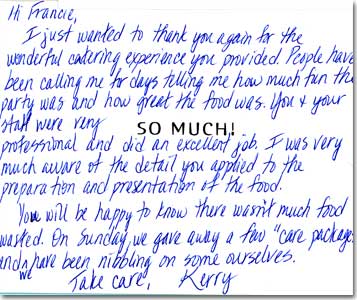 Hi Francie,
I just wanted to thank you again for the
wonderful catering experience you provided. People have
been calling me for days telling me how much fun the
party was and how great the food was. You & your
staff were very
SO MUCH!
professional and did an excellent job. I was very
much aware of the detail you applied to the
preparation and presentation of the food.
You will be happy to know there wasn't much food
wasted. On Sunday, we gave away a few "care package
and we have been nibbling on some ourselves.
Take care, Kerry